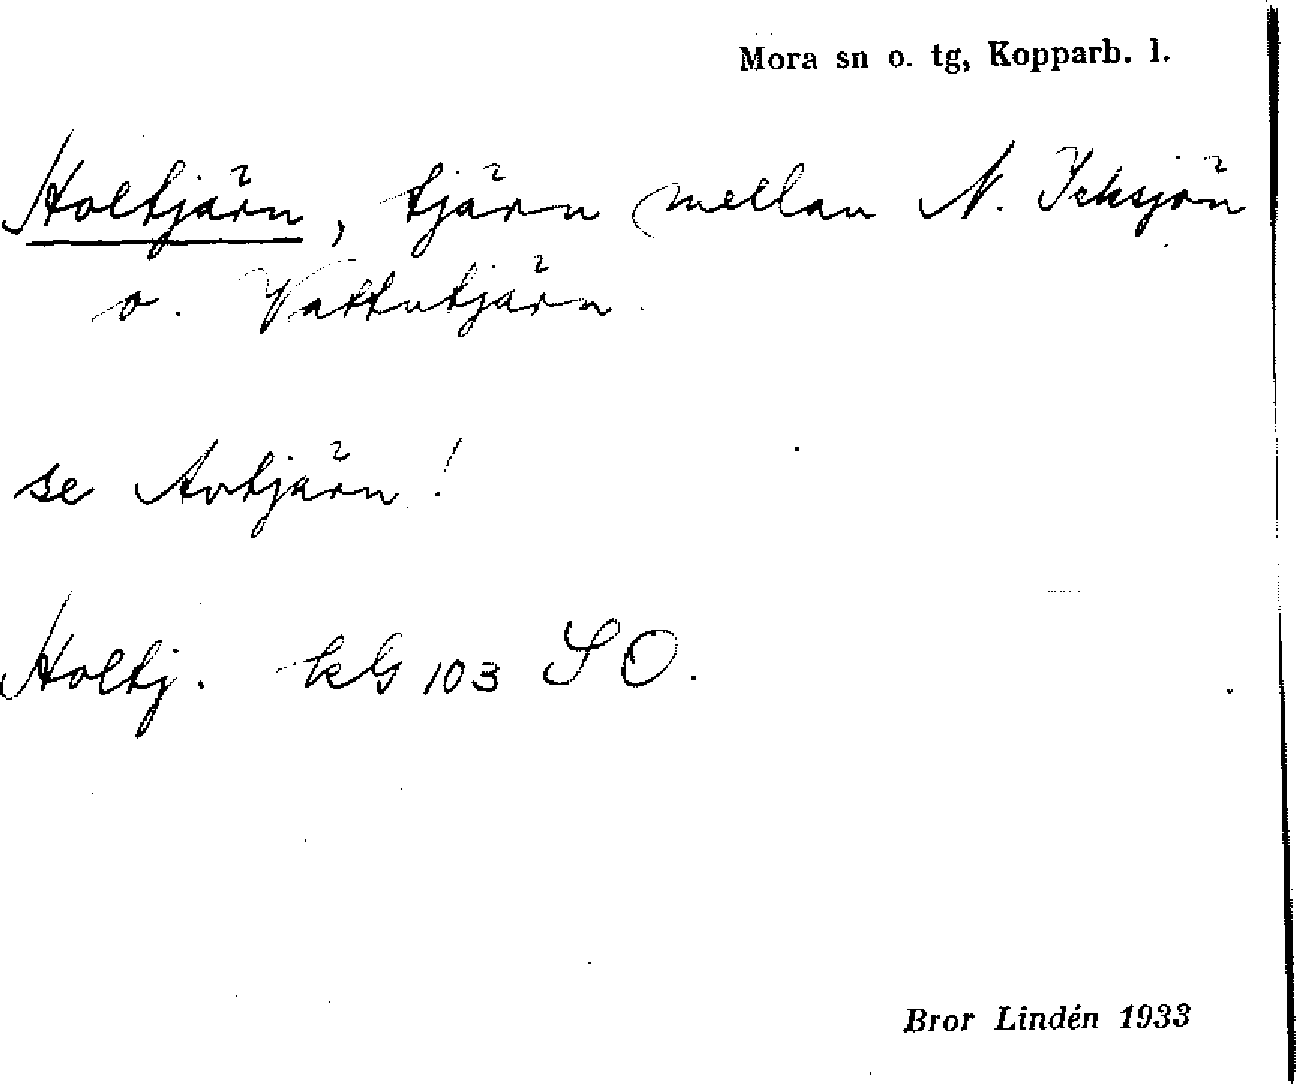 Mora sn o. tg, Kopparb. l.
Holtjärn, tjärn mellan N. Icksjön
o. Vattutjärn.
se Avtjärn!
Holtj. kbl 103 SO.
Bror Lindén 1933